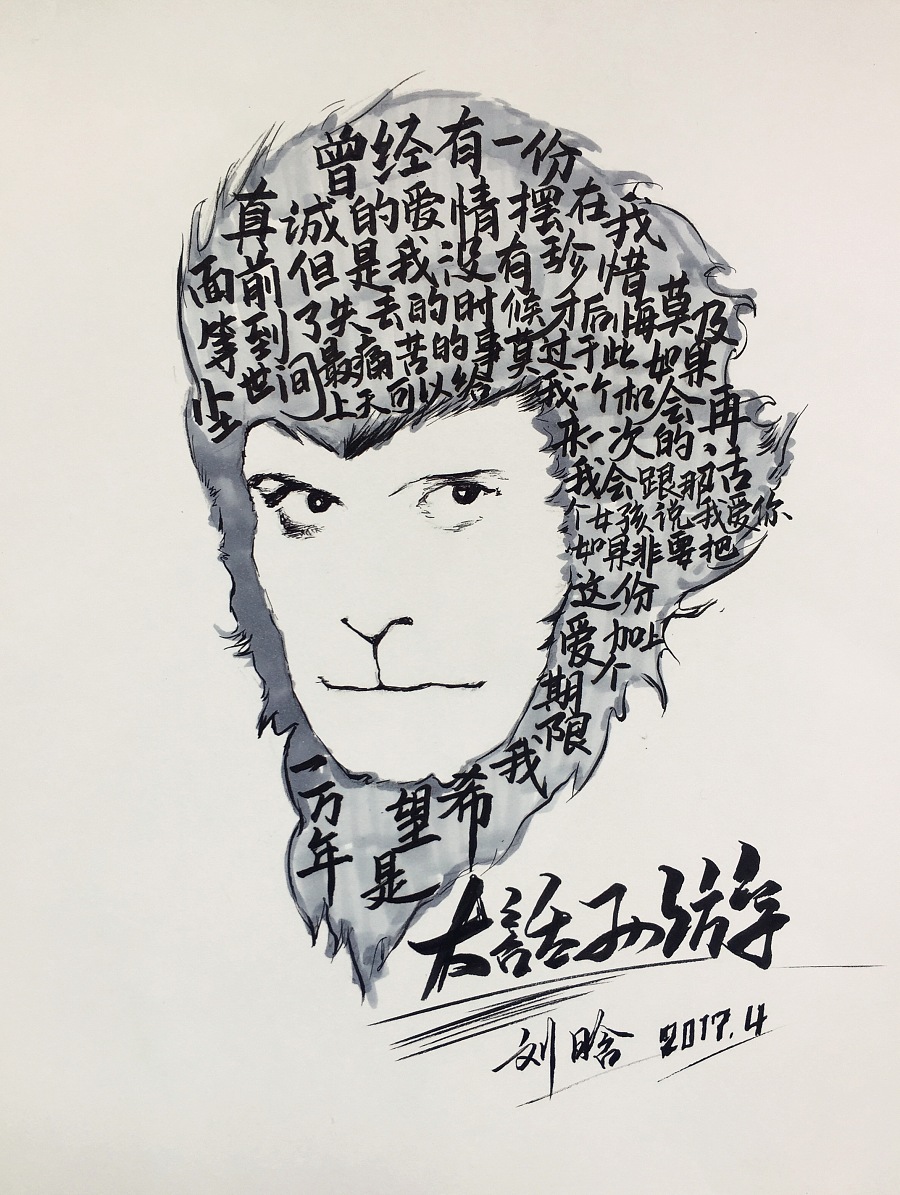 曾经有一份
真诚的爱情摆在我
面前但是我没有珍惜
等到了失去的时候才后悔莫及
尘世间最痛苦的事莫过于此如果
上天可以给我一个机会再
来一次的话
我会跟那
个女孩说我爱你
如果非要把
这份
爱加上
个
期限
我
希
望
是
一万年
大話
刘晗 2017.4